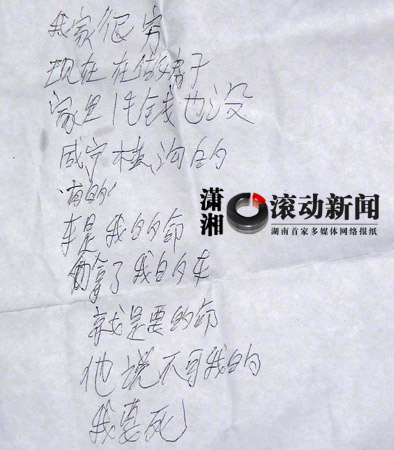 我家很穷
现在在做房子
家里1毛钱也没
咸宁楼沟的
有的
车是我的命
拿了我的车
就是要的命
他说不可我的
我要死
潇湘
滚动新闻
湖南首家多媒体网络报纸